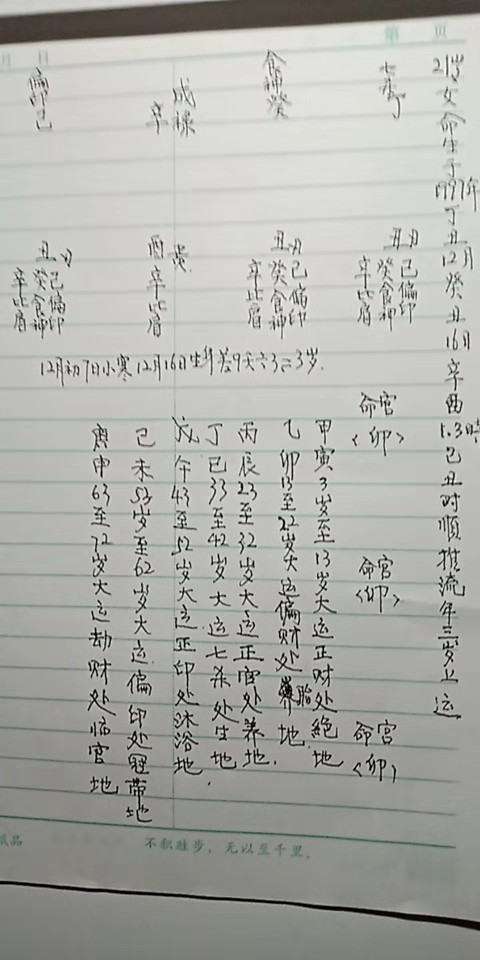 第 页
月 日
21岁女命生于1997年丁丑12月癸丑16日辛酉1.3時己丑时顺推流年三岁上运
七杀丁
食神癸
戊禄
辛
偏印己
丑月
己偏印
癸食神
辛比肩
丑月
己偏印
癸食神
辛比肩
酉
辛比肩
丑月
己偏印
癸食神
辛比肩
12月初7日小寒12月16日生年差9天
命宫
<卯>
命宫
<卯>
命宫
<卯>
甲寅3岁至13岁大运正财处绝地
乙卯13至22岁大运偏财处胎地.
丙辰23至32岁大运正官处养地.
丁巳33至42岁大运七杀处生地.
戊午43至52岁大运正印处沐浴地
己未53岁至62岁大运偏印处冠带地
庚申63至72岁大运劫财处临官地
纸品
不积跬步，无以至千里。